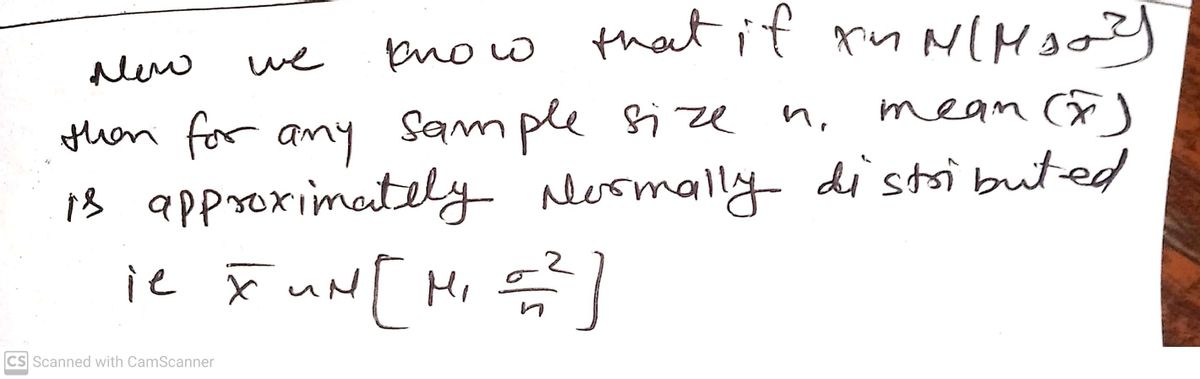 Now we know that if x~N(μ, σ²)
then for any sample size n, mean (x̄)
is approximately Normally distributed
ie x̄ ~ N[μ, σ²/n]
CS Scanned with CamScanner